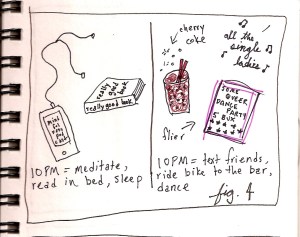 really
good
book
really good book
10PM = meditate,
read in bed, sleep
cherry
coke
all the
single
ladies
SOME
QUEER
DANCE
PARTY
5 BUX
flier
10PM = text friends,
ride bike to the bar,
dance
fig. 4